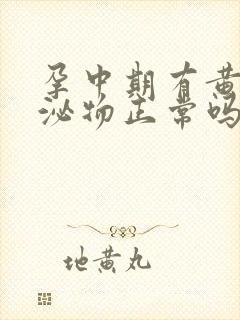 孕中期有黄
泌物正常吗
地黄丸